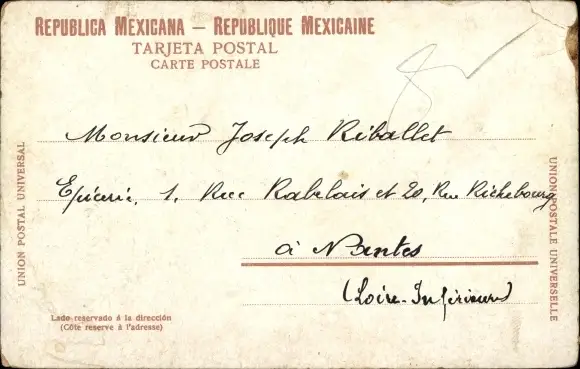 REPUBLICA MEXICANA — REPUBLIQUE MEXICAINE
TARJETA POSTAL
CARTE POSTALE
Monsieur Joseph Riballet
Epicerie, 1, Rue Rabelais et 20, Rue Richebourg
à Nantes
(Loire-Inférieure)
UNION POSTAL UNIVERSAL
UNION POSTALE UNIVERSELLE
Lado reservado á la dirección
(Côte reserve à l'adresse)